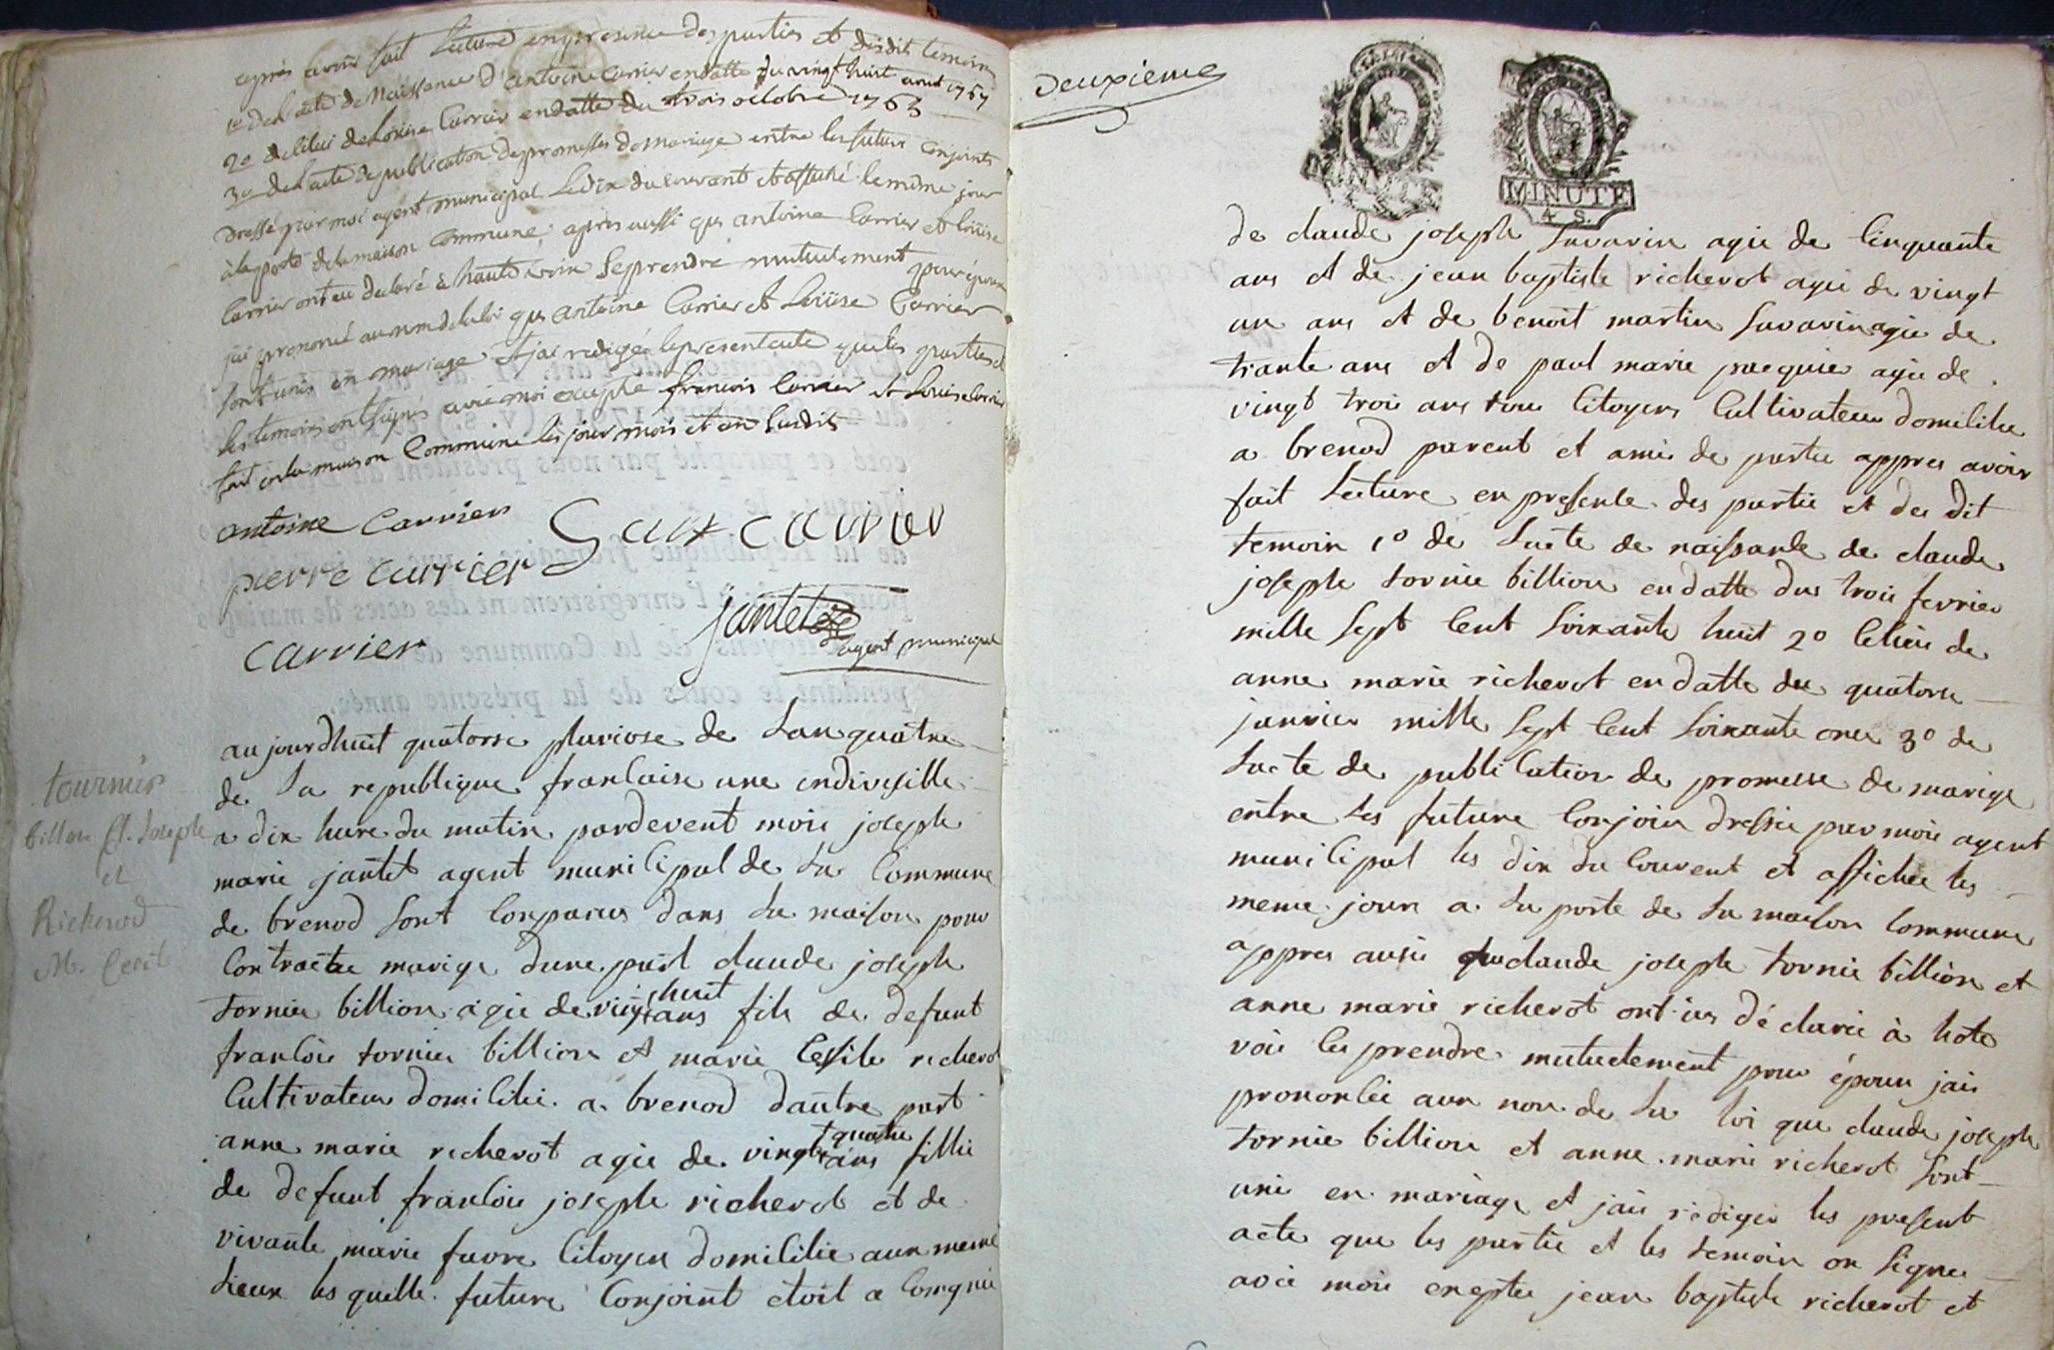 après avoir fait Lecture en presence des parties et desdits temoins
1º de l'acte de Naissance d'antoine Carrier en datte du vingt huit aout 1757
2º de Celui de Louise Carrier en datte du trois octobre 1763
3º de l'acte de publication de promesses de mariage entre les futurs conjoints
dressé par moi agent municipal Le dix du courant et affiché le même jour
à la porte de la maison Commune, après aussi que antoine Carrier et Loüise
Carrier ont eu declaré à haute voix Se prendre mutuelement pour époux
j'ai prononcé au nom de la loi que antoine Carrier et Loüise Carrier
Sont unis en mariage et j'ai redigé le present acte que les parties et
les temoins ont signés avec moi excepté françois Carrier et Louise Carrier
fait en la maison Commune les jour mois et an Susdits
antoine Carrier
carrier
pierre carrier
jantet
agent municipal
carrier
aujourdhuit quatorse pluviose de Lan quatre
de La republique franCaise une indivisible
a dix hure du matin pardevent moi joseph
marie jantet agent muniCipal de La Commune
de brenod Sont Conparus dans La maison pour
Contracter marige dune part claude joseph
tornier billion agie de vingt huit ans fils de defunt
franCois tornier billion et marie Cesile richerot
Cultivateur domiCilié a brenod dautre part
anne marie richerot agie de vingt quatre ans fillie
de defunt franCois joseph richerot et de
vivante marie favre Citoyen domiCilié aux meme
Lieux les quelle future Conjoint etoit a Compnie
tournier
billon Cl. Joseph
et
Richerod
M. Cecile
Deuxieme
MINUTE
4 S.
de claude joseph Savarin agie de Cinquante
ans et de jean baptiste richerot agie de vingt
un ans et de benoit martin Savarin agie de
trante ans et de paul marie jacquier agie de
vingt trois ans tous Citoyens Cultivateur domiCilier
a brenod parent et amis de partie appres avoir
fait Lecture en presenCe des partie et des dit
temoin 1º de Lacte de naissanCe de claude
joseph tornier billion en datte dus trois fevrier
mille Sept Cent Soixante huit 2º Celui de
anne marie richerot en datte du quatorse
janvier mille Sept Cent Soixante onze 3º de
Lacte de publiCation de promesse de marige
entre Les future Conjoin dressie par moi agent
muniCipal les dix du Courent et affichee les
meme jour a La porte de La maison Commune
appres ausie que claude joseph tornie billion et
anne marie richerot ont us déclarée à hote
voix Ces prendre mutuelement pour époux jai
prononCée aux non de La loi que claude joseph
tornie billion et anne marie richerot Sont
unie en mariage et jai rédiger les present
acte que les partie et les temoin on Signe
avec moi exeptee jean baptiste richerot et